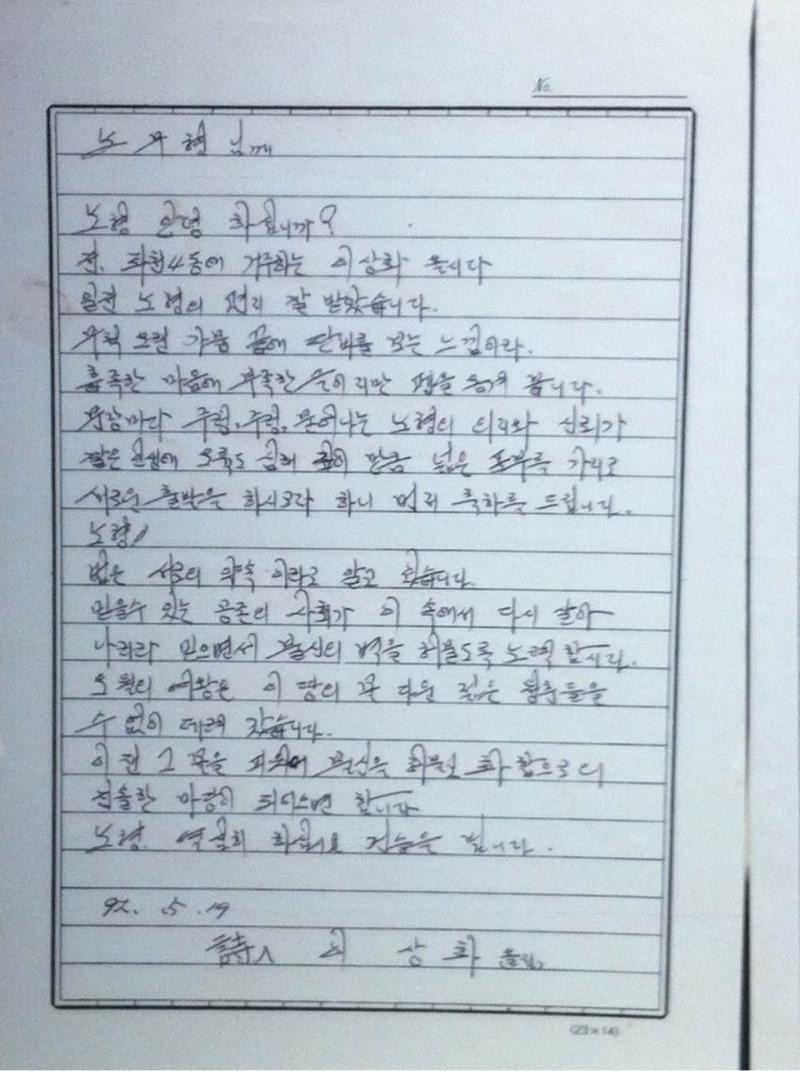 No.
노우현 님께
노형 안녕 하십니까?
전, 화천4동에 거주하는 이상화 올시다
일전 노형의 편지 잘 받았습니다.
무척 오랜 가뭄 끝에 단비를 맞는 느낌이라.
흡족한 마음에 부족한 글이지만 펜을 옮겨 봅니다.
문장마다 주렁, 주렁, 묻어나는 노형의 의리와 신뢰가
짧은 인생에 오육도 심히 깊이 만큼 넓은 포부를 가지고
새로운 출발을 하시고라 하니 먼저 축하를 드립니다.
노형!
법은 서로의 약속 이라고 알고 있습니다.
믿을수 있는 공존의 사회가 이 속에서 다시 살아
나리라 믿으면서 불신의 벽을 허물도록 노력 합시다.
오월의 여왕은 이 땅의 꽃 다운 젊은 청춘들을
수 없이 데려 갔습니다.
이젠 그 꽃을 피워 불신을 허물고 화합으로의
진솔한 마당이 되었으면 합니다
노형. 열심히 하십시요 건승을 빕니다.
92. 5. 19
詩人 이 상 화 (올림)
(23×14)